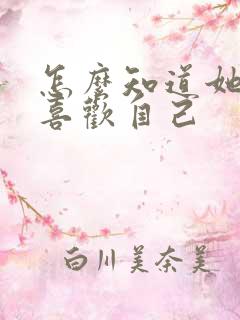 怎麼知道她
喜歡自己
白川美奈美